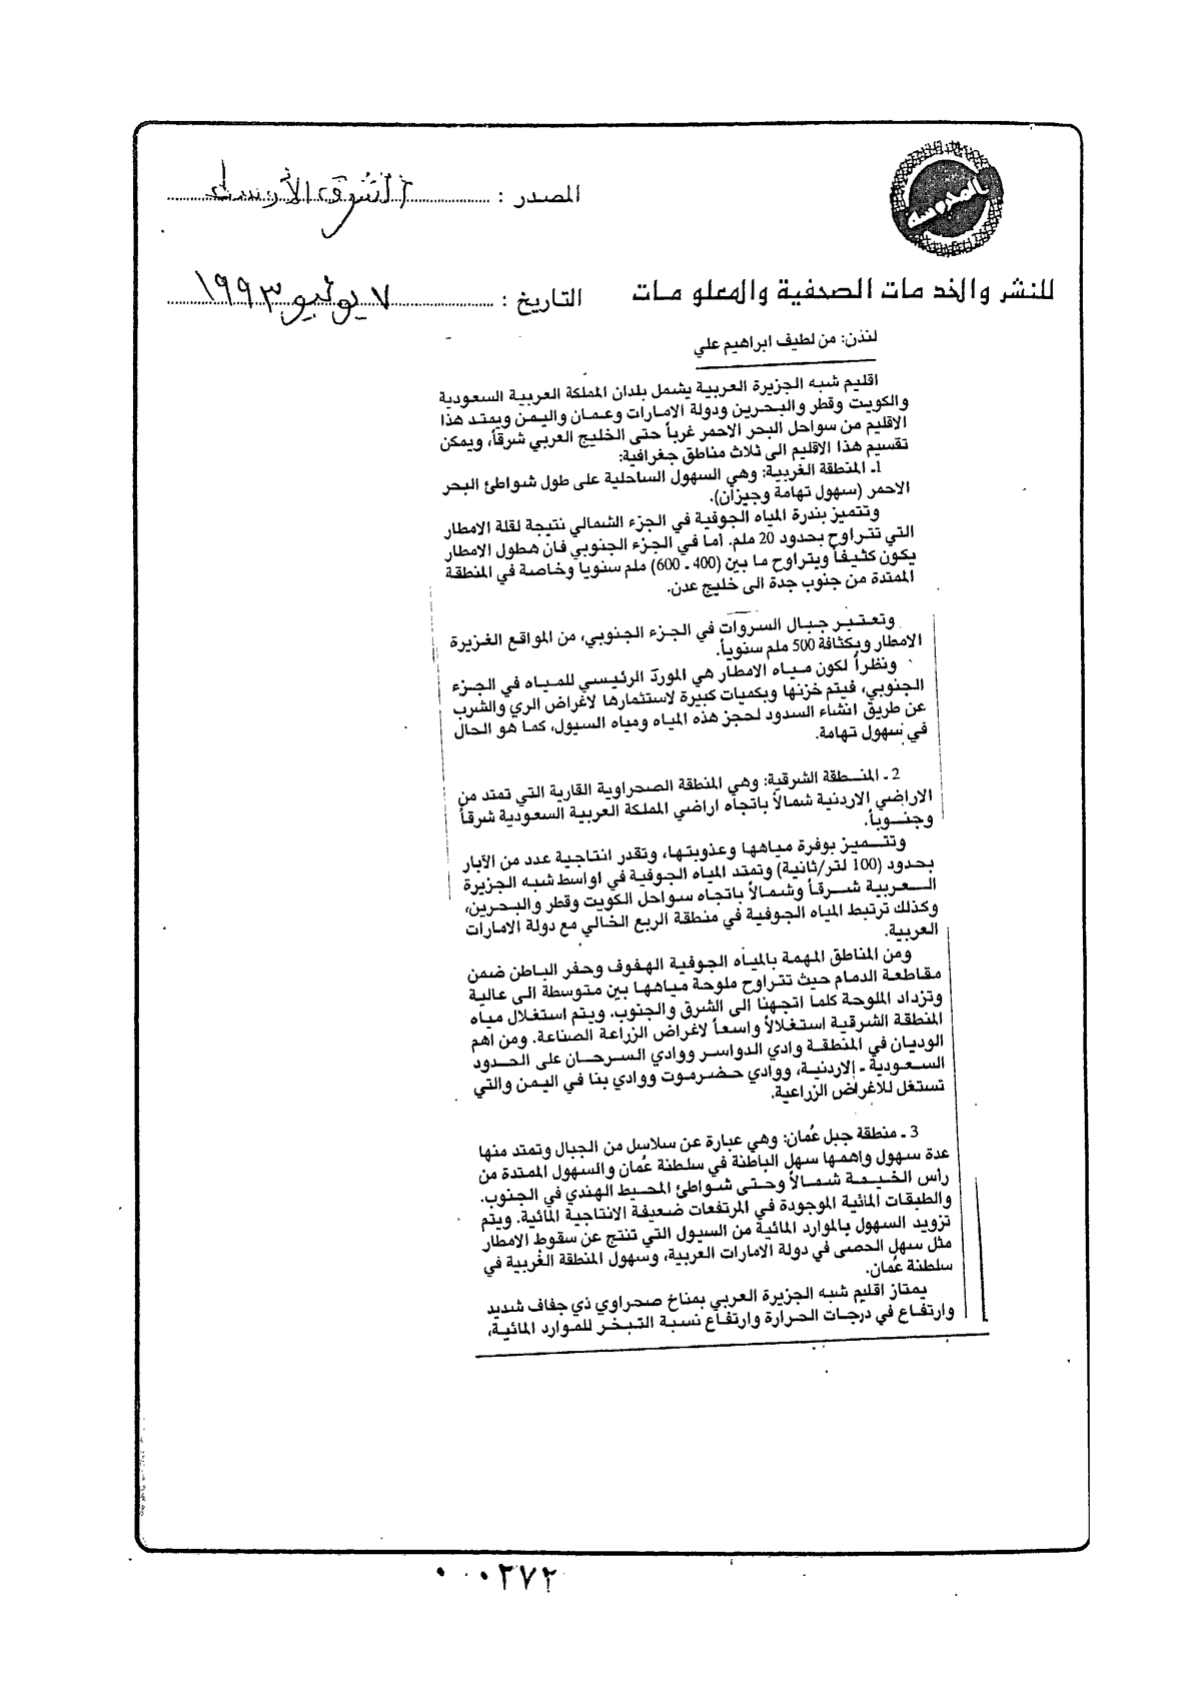 المصدر : الشرق الأوسط
المحروسة
للنشر والخدمات الصحفية والمعلومات
التاريخ : ٧ يونيو ١٩٩٣
لندن: من لطيف ابراهيم علي
اقليم شبه الجزيرة العربية يشمل بلدان المملكة العربية السعودية
والكويت وقطر والبحرين ودولة الامارات وعمان واليمن ويمتد هذا
الاقليم من سواحل البحر الاحمر غرباً حتى الخليج العربي شرقاً، ويمكن
تقسيم هذا الاقليم الى ثلاث مناطق جغرافية:
1ـ المنطقة الغربية: وهي السهول الساحلية على طول شواطئ البحر
الاحمر (سهول تهامة وجيزان).
وتتميز بندرة المياه الجوفية في الجزء الشمالي نتيجة لقلة الامطار
التي تتراوح بحدود 20 ملم. أما في الجزء الجنوبي فان هطول الامطار
يكون كثيفاً ويتراوح ما بين (400 ـ 600) ملم سنويا وخاصة في المنطقة
الممتدة من جنوب جدة الى خليج عدن.
وتعتبر جبال السروات في الجزء الجنوبي، من المواقع الغزيرة
الامطار وبكثافة 500 ملم سنوياً.
ونظراً لكون مياه الامطار هي المورد الرئيسي للمياه في الجزء
الجنوبي، فيتم خزنها وبكميات كبيرة لاستثمارها لاغراض الري والشرب
عن طريق انشاء السدود لحجز هذه المياه ومياه السيول، كما هو الحال
في سهول تهامة.
2 ـ المنطقة الشرقية: وهي المنطقة الصحراوية القارية التي تمتد من
الاراضي الاردنية شمالاً باتجاه اراضي المملكة العربية السعودية شرقاً
وجنوباً.
وتتميز بوفرة مياهها وعذوبتها، وتقدر انتاجية عدد من الآبار
بحدود (100 لتر/ثانية) وتمتد المياه الجوفية في اواسط شبه الجزيرة
العربية شرقاً وشمالاً باتجاه سواحل الكويت وقطر والبحرين،
وكذلك ترتبط المياه الجوفية في منطقة الربع الخالي مع دولة الامارات
العربية.
ومن المناطق المهمة بالمياه الجوفية الهفوف وحفر الباطن ضمن
مقاطعة الدمام حيث تتراوح ملوحة مياهها بين متوسطة الى عالية
وتزداد الملوحة كلما اتجهنا الى الشرق والجنوب. ويتم استغلال مياه
المنطقة الشرقية استغلالاً واسعاً لاغراض الزراعة الصناعة. ومن اهم
الوديان في المنطقة وادي الدواسر ووادي السرحان على الحدود
السعودية ـ الاردنية، ووادي حضرموت ووادي بنا في اليمن والتي
تستغل للاغراض الزراعية.
3 ـ منطقة جبل عُمان: وهي عبارة عن سلاسل من الجبال وتمتد منها
عدة سهول واهمها سهل الباطنة في سلطنة عُمان والسهول الممتدة من
رأس الخيمة شمالاً وحتى شواطئ المحيط الهندي في الجنوب.
والطبقات المائية الموجودة في المرتفعات ضعيفة الانتاجية المائية. ويتم
تزويد السهول بالموارد المائية من السيول التي تنتج عن سقوط الامطار
مثل سهل الحصى في دولة الامارات العربية، وسهول المنطقة الغربية في
سلطنة عُمان.
يمتاز اقليم شبه الجزيرة العربي بمناخ صحراوي ذي جفاف شديد
وارتفاع في درجات الحرارة وارتفاع نسبة التبخر للموارد المائية،
٠٠٠٢٧٢